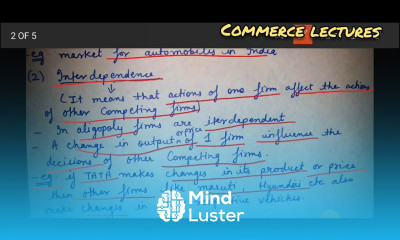 2 OF 5
COMMERCE LECTURES
1
eg market for automobiles in India
(2) Interdependence
(It means that actions of one firm affect the actions
of other Competing firms)
- In oligopoly firms are interdependent
- A change in output or price of 1 firm influence the
decisions of other Competing firms.
- eg. if TATA makes changes in its product or price
then other firms like maruti, Hyundai etc also
make changes in vehicles.
Mind
Luster